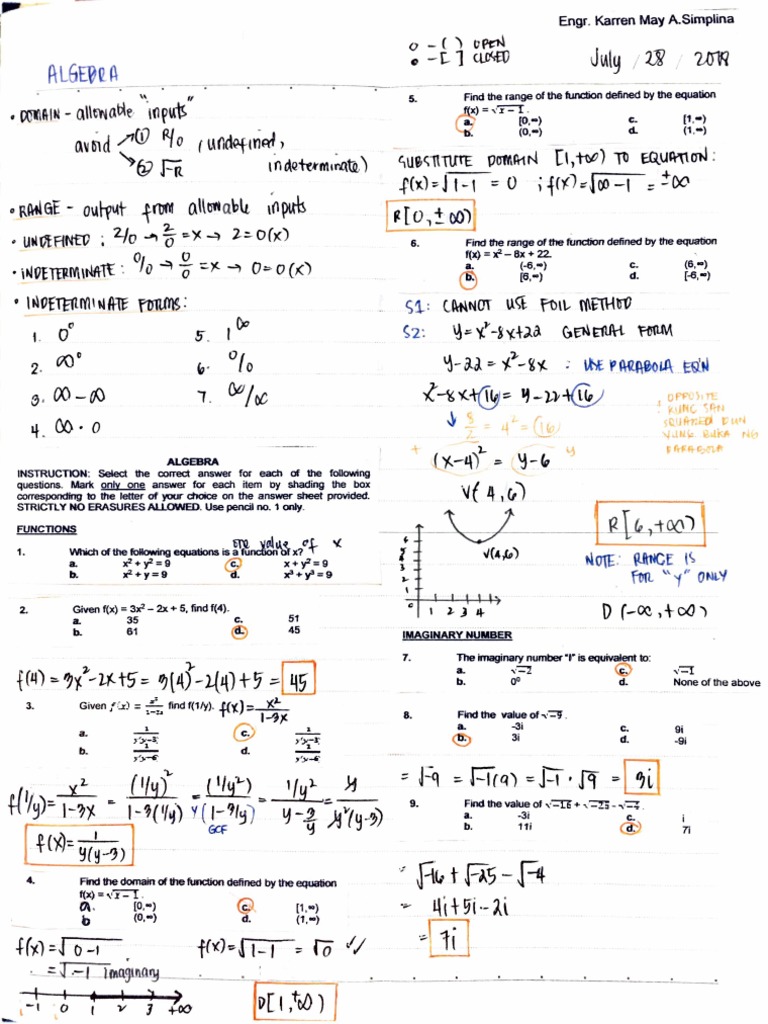 Engr. Karren May A.Simplina
ALGEBRA
o - ( ) OPEN
• - [ ] CLOSED
July / 28 / 2018
• DOMAIN - allowable "inputs"
avoid → ① R/0 (undefined,
→ ② √-R indeterminate)
• RANGE - output from allowable inputs
• UNDEFINED : 2/0 → 2/0 = x → 2 = 0(x)
• INDETERMINATE : 0/0 → 0/0 = x → 0 = 0(x)
• INDETERMINATE FORMS :
1. 0⁰ 5. 1^∞
2. ∞⁰ 6. 0/0
3. ∞ - ∞ 7. ∞/∞
4. ∞ · 0
ALGEBRA
INSTRUCTION: Select the correct answer for each of the following
questions. Mark only one answer for each item by shading the box
corresponding to the letter of your choice on the answer sheet provided.
STRICTLY NO ERASURES ALLOWED. Use pencil no. 1 only.
FUNCTIONS
one value of x
1. Which of the following equations is a function of x?
a. x² + y² = 9 c. x + y² = 9
b. x² + y = 9 d. x³ + y³ = 9
2. Given f(x) = 3x² – 2x + 5, find f(4).
a. 35 c. 51
b. 61 d. 45
f(4) = 3x² - 2x + 5 = 3(4)² - 2(4) + 5 = 45
3. Given f(x) = find f(1/y). f(x) = x²/1-3x
a. c.
b. d.
f(1/y) = x²/1-3x = (1/y)²/1-3(1/y) = (1/y²)/y(1-3/y) = 1/y²/y-3/y = y/y²(y-3)
GCF
f(x) = 1/y(y-3)
4. Find the domain of the function defined by the equation
f(x) = √x – 1 .
a. [0,∞) c. [1,∞)
b (0,∞) d. (1,∞)
f(x) = √0-1 f(x) = √1-1 = √0 ✓✓
= √-1 imaginary
-1 0 1 2 3 +∞
D[1,+∞)
5. Find the range of the function defined by the equation
f(x) = √x – 1 .
a. [0,∞) c. [1,∞)
b. (0,∞) d. (1,∞)
SUBSTITUTE DOMAIN [1,+∞) TO EQUATION:
f(x) = √1-1 = 0 ; f(x) = √∞-1 = ±∞
R[0,±∞)
6. Find the range of the function defined by the equation
f(x) = x² – 8x + 22.
a. (-6,∞) c. (6,∞)
b. [6,∞) d. [-6,∞)
S1: CANNOT USE FOIL METHOD
S2: y = x²-8x+22 GENERAL FORM
y-22 = x²-8x : USE PARABOLA EQ'N
x²-8x+16 = y-22+16
↓ 8/2 = 4² = 16
: OPPOSITE
: KUNG SAN
SQUARED DUN
YUNG BUKA NG
PARABOLA
+ (x-4)² = y-6 y
V(4,6)
R[6,+∞)
V(4,6)
6
5
4
3
2
1
0 1 2 3 4
NOTE: RANGE IS
FOR "y" ONLY
D(-∞,+∞)
IMAGINARY NUMBER
7. The imaginary number "I" is equivalent to:
a. √-2 c. √-1
b. 0⁰ d. None of the above
8. Find the value of √-9 .
a. -3i c. 9i
b. 3i d. -9i
= √-9 = √-1(9) = √-1 · √9 = 3i
9. Find the value of √-16 + √-25 - √-4 .
a. -3i c. i
b. 11i d. 7i
= √-16 + √-25 - √-4
= 4i + 5i - 2i
= 7i